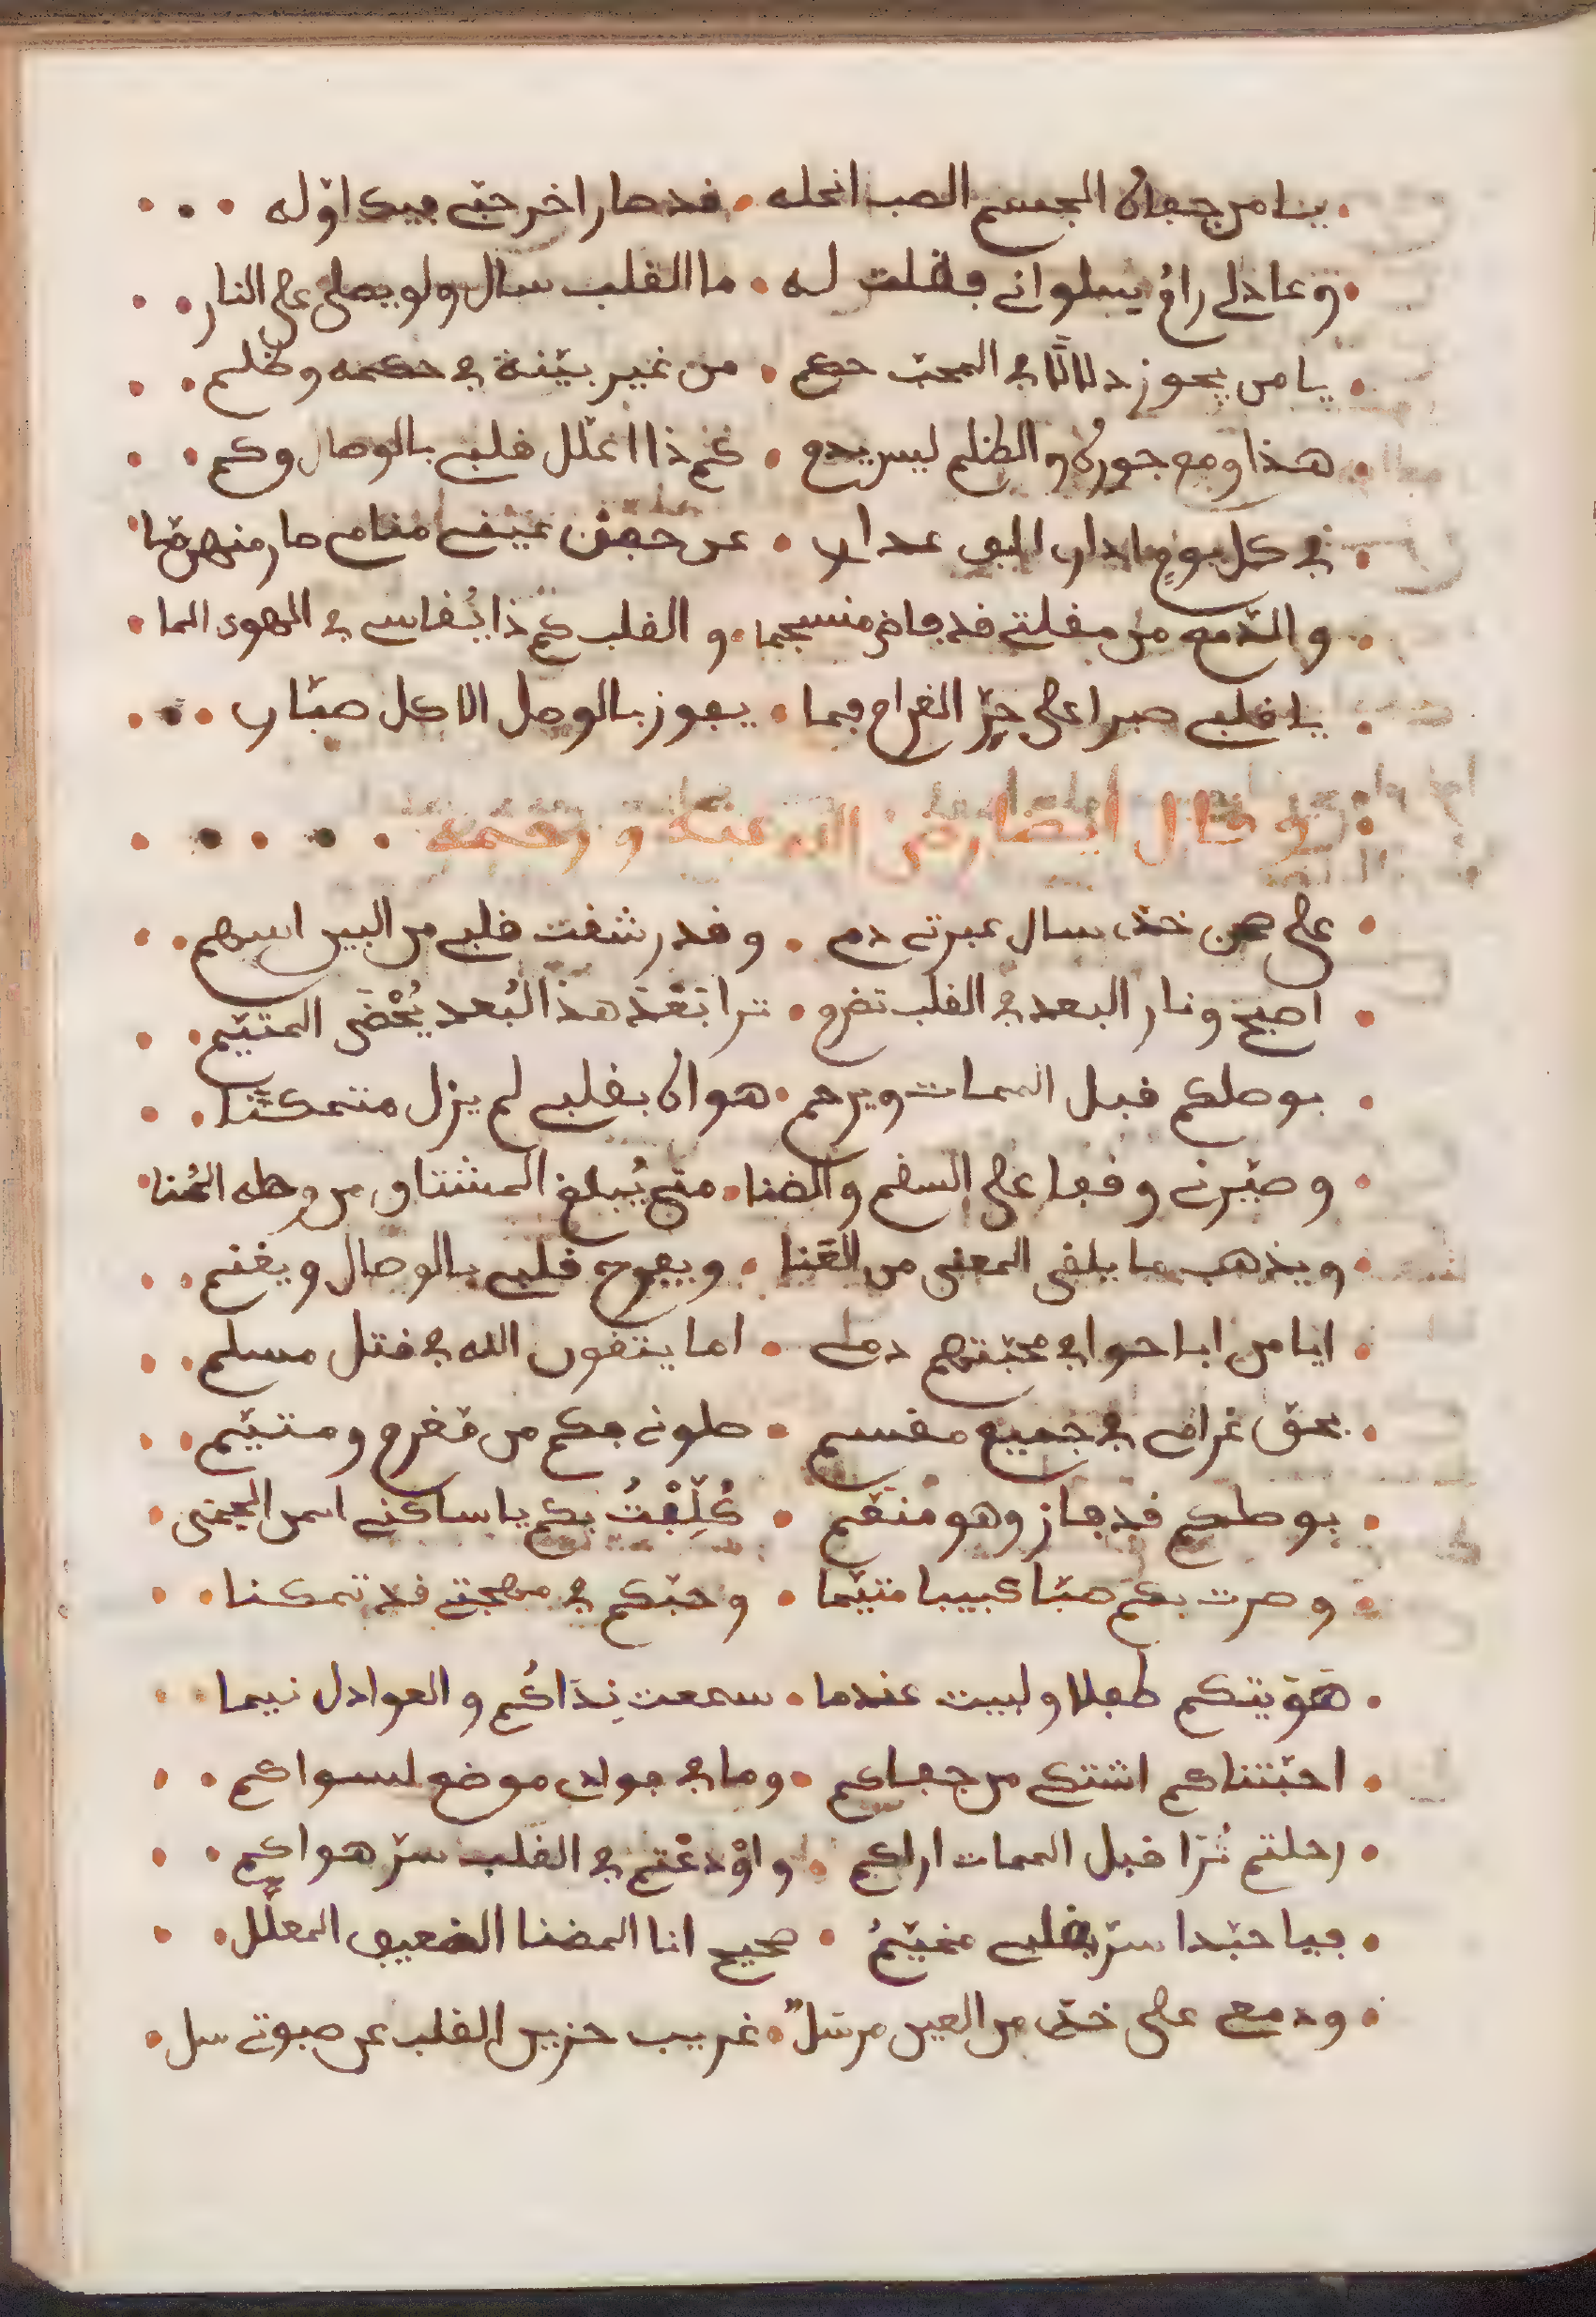 يا من جفاه الجسم الصب انحله قد صار اخر حتى فيك اوله
وعاذلي رام يسلواني فقلت له ما القلب سال ولو يصلى على النار
يا من يحوز دلالًا في المحب حكم من غير بيّنة في حكمه وظلم
هذا ومع جوره والظلم ليس يدم كم ذا اعلّل قلبي بالوصال وكم
في كل يوم ادارى البين
عن جفن عيني منامي صار منهزما
والدّمع من مقلتي قد فاض منسجما و القلب كم ذا يُقاسي في الهوى الما
يا قلبي صبرا على حرّ الغرام فما يفوز بالوصل الا كل صبّار
و قال ايضا رضي الله عنه و رحمه
على صحن خدّى سال عبرتي دم و قد رشقت قلبي من البين اسهم
اصيح و نار البعد في القلب تضرم ترا بَعْدَ هذا البُعد يُحْضَى المتيّم
بوصلكم قبل الممات ويرحم هواه بقلبي لم يزل متمكنًا
و صيّرني وقفا على السقم والضنا متى يُبلغ المشتاق من وصله المُنا
ويذهب ما يلقى المعنى من العَنا ويفرح قلبي بالوصال ويغنم
ايا من اباحوا في محبّتهم دمي اما يتقون الله في قتل مسلم
بحق غرامي في جميع مقسم صلوني بكم من مُغرم ومتيّم
بوصلكم قد فاز وهو منعّم كُلِّفْتُ بكم يا ساكني ايمن الحمى
و صرت بكم صبّا كئيبا متيّما وحبّكم في مهجتي قد تمكنا
هَوَيتكم طفلا ولبيت عندما سمعت نِدَاكُم و العواذل نيما
احبّتناكم اشتكي من جفاكم وما في فوادي موضع لسواكم
رحلتم تُرا قبل الممات اراكم واوْدعْتم في القلب سرّ هواكم
فيا حبّذا سرّ بقلبي مخيّمُ صحيح انا المضنا الضعيف المعلّل
ودمعي على خدّى من العين مرسل غريب حزين القلب عن صبوتي سل